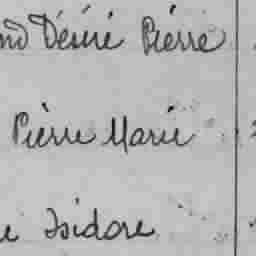 nd Désiré Pierre
Pierre Marie
e Isidore